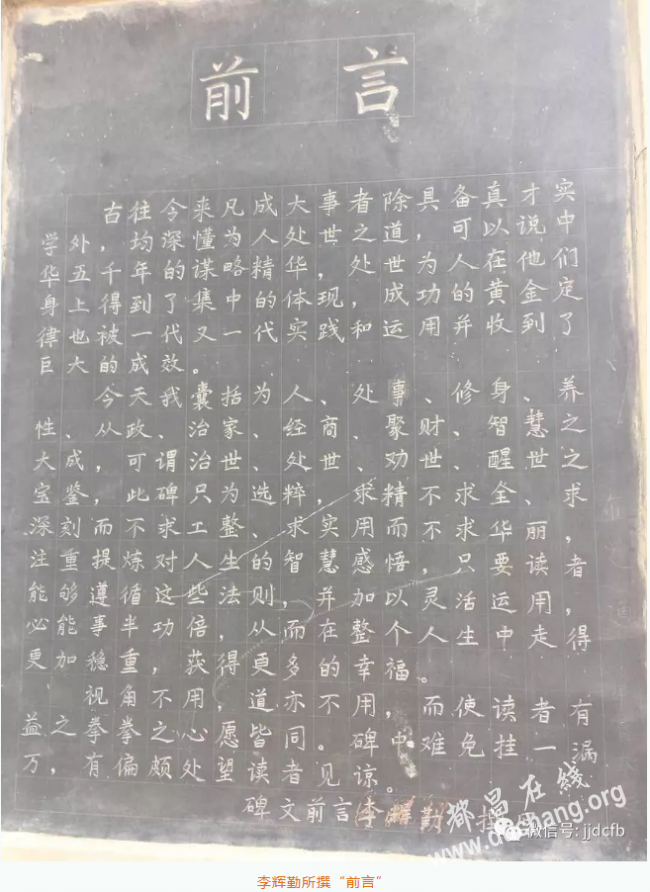 前言
古往今来凡成大事者除具备真才实
学外，均深懂为人处世之道，可以说中
华五千年的谋略精华，处世为人在他们
身上得到了集中的体现，成功的黄金定
律也被一代又一代实践和运用并收到了
巨大的成效。
今天我囊括为人、处事、修身、养
性、从政、治家、经商、聚财、智慧之
大成，可谓治世、处世、劝世、醒世之
宝鉴，此碑只为选粹，求精不求全、求
深刻而不求工整、求实用而不求华丽，
注重提炼对人生的智慧感悟，只要读者，
能够遵循这些法则，并加以灵活运用，
必能事半功倍，从而在整个人生中走得
更加稳重，获得更多的幸福。
视角不用，道亦不用，而使读者有
益之拳拳之心，愿皆同。碑中难免挂一漏
万，有偏颇处望读者见谅。
碑文前言李辉勤
都昌在线
www.dochang.org
微信号: jjdcfb
李辉勤所撰“前言”